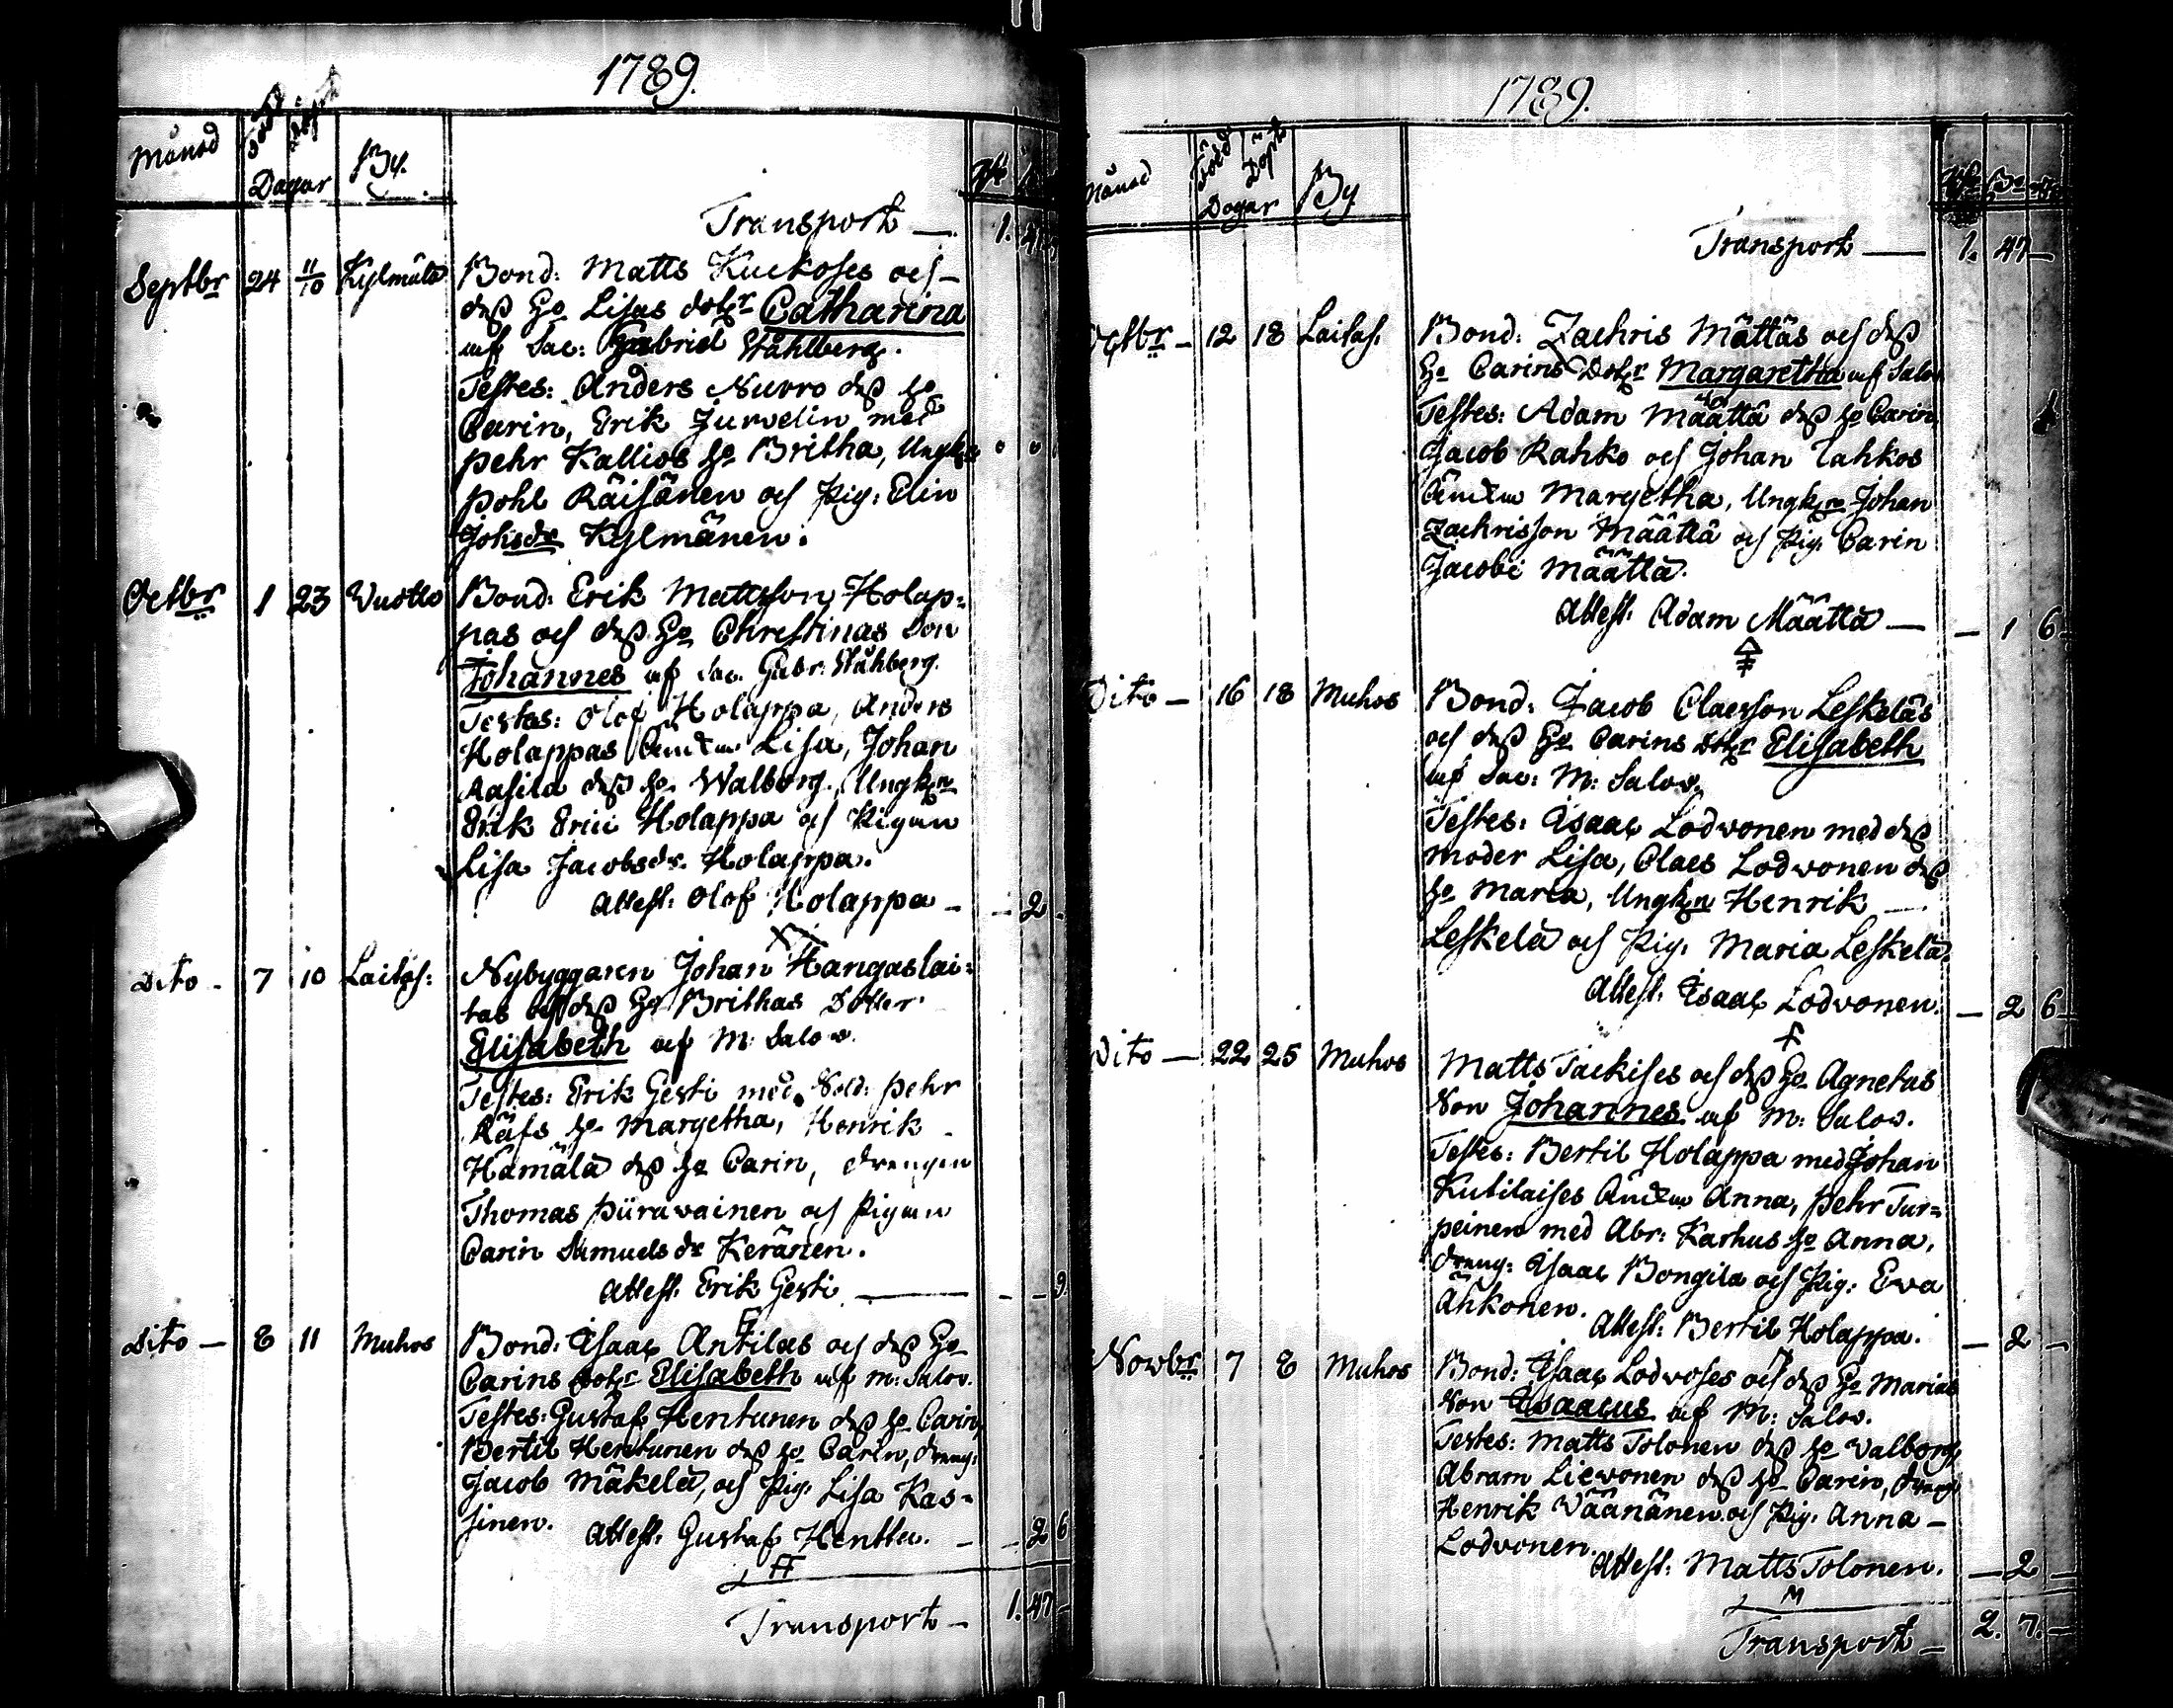 1789.
Månad Född Döpt Dagar By.
Transport — 1. 47
Septbr 24 11/10 Kylmälä Bond: Matts Kuckoses och
dess Ho Lisas dotr Catharina
af Sac: Gabriel Ståhlberg.
Testes: Anders Nurro dess ho
Carin, Erik Jurvelin med
Pehr Kallios ho Britha, Ungk
Pohl Räisänen och Pig: Elin
Johsdr Kylmänen.
Octbr 1 23 Vuotto Bond: Erik Mattsson Holap=
pas och dess Ho Christinas Son
Johannes af Sac. Gabr: Ståhberg.
Testes: Olof Holappa, Anders
Holappas Lisa, Johan
Rasila dess ho Walborg, Ungkn
Erik Erici Holappa och Pigan
Lisa Jacobsdr. Holappa.
Attest: Olof Holappa — — 2 —
Dito — 7 10 Laitas: Nybyggaren Johan Hangaslai=
tas och dess Ho Brithas Dotter
Elisabeth af M: Salov.
Testes: Erik Gesti med Sold: Pehr
Räfs ho Margetha, Henrik
Hämälä dess ho Carin, drengen
Thomas Piiravainen och Pigan
Carin Samuelsdr Keränen.
Attest. Erik Gesti — — — 9.
Dito — 8 11 Muhos Bond: Isaac Antilas och dess Ho
Carins dotr Elisabeth af M: Salov.
Testes: Gustaf Hentunen dess ho Carin,
Bertil Hentunen dess ho Carin, dreng:
Jacob Mäkelä, och Pig. Lisa Kas=
sinen.
Attest. Gustaf Henttu. — — 2 6
Transport — 1. 47 —
1789.
Månad Född Döpt Dagar By
Transport — 1. 47 —
Octbr — 12 18 Laitas. Bond: Zachris Mättäs och dess
Ho Carins Dotr Margaretha af Salov
Testes: Adam Määttä dess ho Carin,
Jacob Rahko och Johan Tahkos
Margetha, Ungkn Johan
Zachrisson Määttä och Pig. Carin
Jacobi Määttä.
Attest. Adam Määttä — — 1 6
Dito — 16 18 Muhos Bond: Jacob Claesson Leskeläs
och dess Ho Carins dotr Elisabeth
af Sac: M: Salov.
Testes: Isaac Lodvonen med dess
moder Lisa, Claes Lodvonen dess
ho Maria, Ungkn Henrik —
Leskelä och Pig. Maria Leskelä.
Attest. Isaac Lodvonen. — 2 6
Dito — 22 25 Muhos Matts Tackises och dess Ho Agnetas
Son Johannes af M: Salov.
Testes: Bertil Holappa med Johan
Kutilaises Anna, Pehr Tur=
peinen med Abr: Karhus ho Anna,
dreng: Isaac Bongila och Pig: Eva
Ahkonen.
Attest: Bertil Holappa. — 2 —
Novbr 7 8 Muhos Bond: Isaac Lodvoses och dess Ho Marias
Son Isaacus af M: Salov.
Testes: Matts Tolonen dess ho Valborg,
Abram Lievonen dess ho Carin, dreng
Henrik Väänänen och Pig. Anna —
Lodvonen.
Attest: Matts Tolonen. — 2 —
M
Transport — 2. 7. —